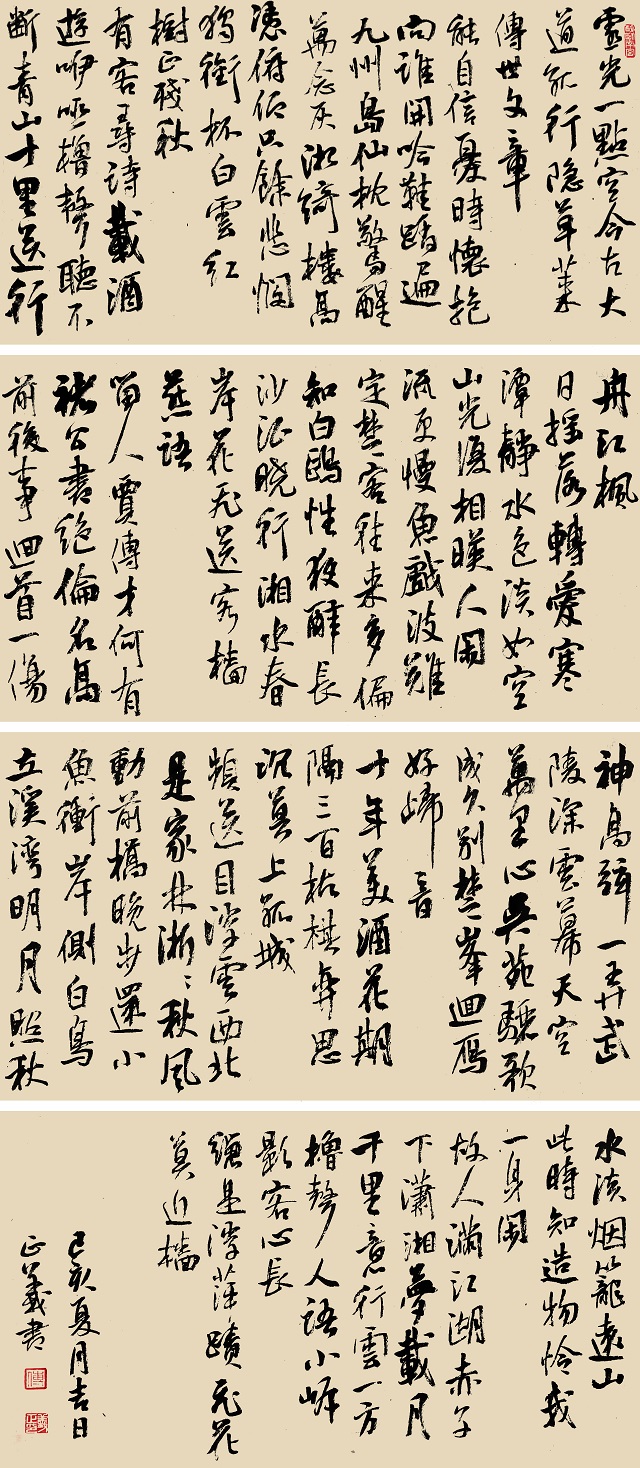 靈光一點空今古大
道於行隐草萊
傳世文章
能自信憂時懷抱
向誰開吟鞋踏遍
九州島仙枕驚醒
萬念灰湘綺樓高
憑俯仰只餘悲悯
獨銜杯白雲紅
樹正殘秋
有客尋詩載酒
遊咿啞櫓聲聽不
断青山十里送行
舟江楓
日摇落轉愛寒
潭靜水色淡如空
山光復相暎人閑
流更慢魚戲波難
定楚客往来多偏
知白鷗性夜醉長
沙酒曉行湘水春
岸花飛送客檣
燕語
留人賈傅才何有
褚公書絕倫名高
前後事迴首一傷
神 一弄武
陵深雲幕天空
萬里心吳苑驪歌
成久别楚峯迴雁
好歸音
十年美酒花期
隔三百枯棋弈思
沉莫上孤城
頻送目浮雲西北
是家林淅淅秋風
動前橋晚步還小
魚衝岸側白鳥
立溪湾明月照秋
水淡烟籠遠山
此時知造物怜我
一身閑
故人滿江湖赤子
下瀟湘夢載月
千里意行雲一方
櫓聲人語小岸
影客心長
總是浮萍蹟飛花
莫近檣
己亥夏月吉日
正義書